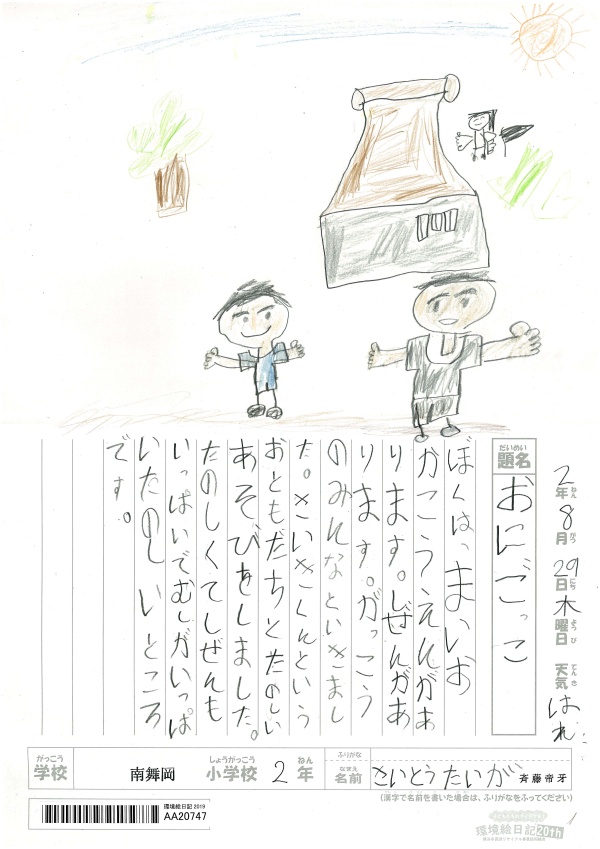 2年8月29日木曜日 天気はれ
ねん がつ にち ようび てんき
だいめい
題名
おにごっこ
ぼくは、まいお
かこうえんがあ
ります。しぜんがあ
ります。がっこう
のみんなといきまし
た。さいきくんという
おともだちとたのしい
あそびをしました。
たのしくてしぜんも
いっぱいでむしがいっぱ
いたのしいところ
です。
がっこう
学校
南舞岡
しょうがっこう
小学校
2年
ねん
ふりがな
なまえ
名前
さいとうたいが
斉藤帝牙
(漢字で名前を書いた場合は、ふりがなをふってください)
環境絵日記 2019
AA20747
環境絵日記20th